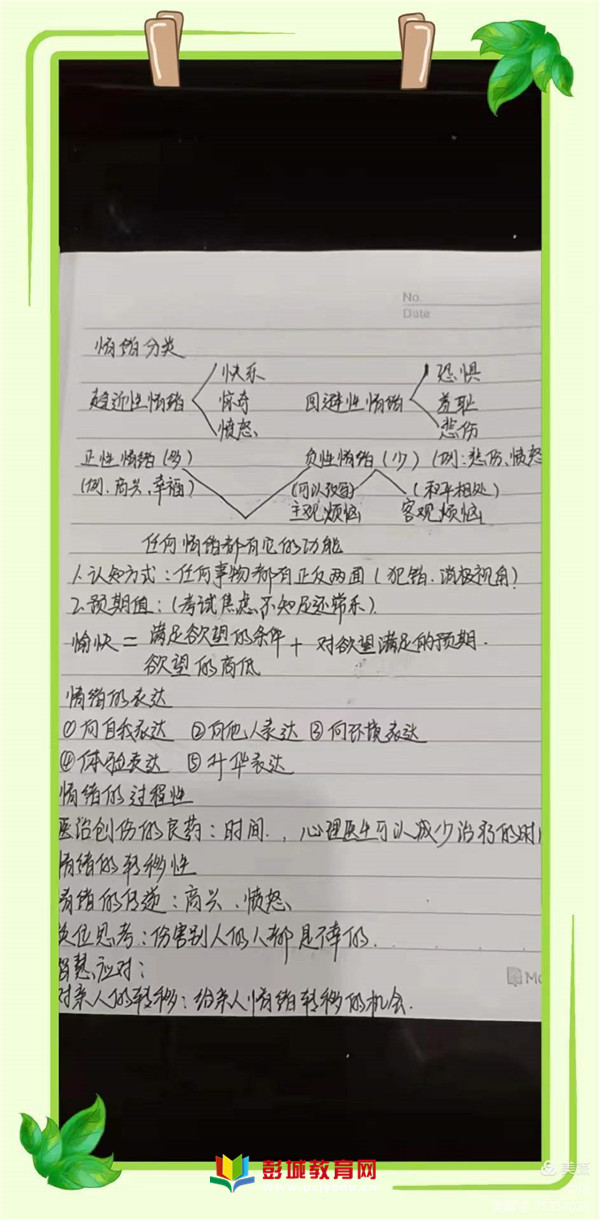 No.
Date
情绪分类
趋近性情绪 快乐 惊奇 愤怒
回避性情绪 恐惧 羞耻 悲伤
正性情绪(多) 负性情绪(少) (例:悲伤、愤怒
(例.高兴、幸福) (可以改变) (和平相处)
主观烦恼 客观烦恼
任何情绪都有它的功能
1.认知方式:任何事物都有正反两面(犯错.消极视角)
2.预期值:(考试焦虑.不知足还常乐)
愉快=满足欲望的条件 + 对欲望满足的预期.
欲望的高低
情绪的表达
①向自我表达 ②向他人表达 ③向环境表达
④体验表达 ⑤升华表达
情绪的过程性
医治创伤的良药:时间.,心理医生可以减少治疗的时
情绪的转移性
情绪的传递:高兴、愤怒、
换位思考:伤害别人的人都是不幸的.
智慧应对:
对亲人的转移:给亲人情绪转移的机会.
彭城教育网